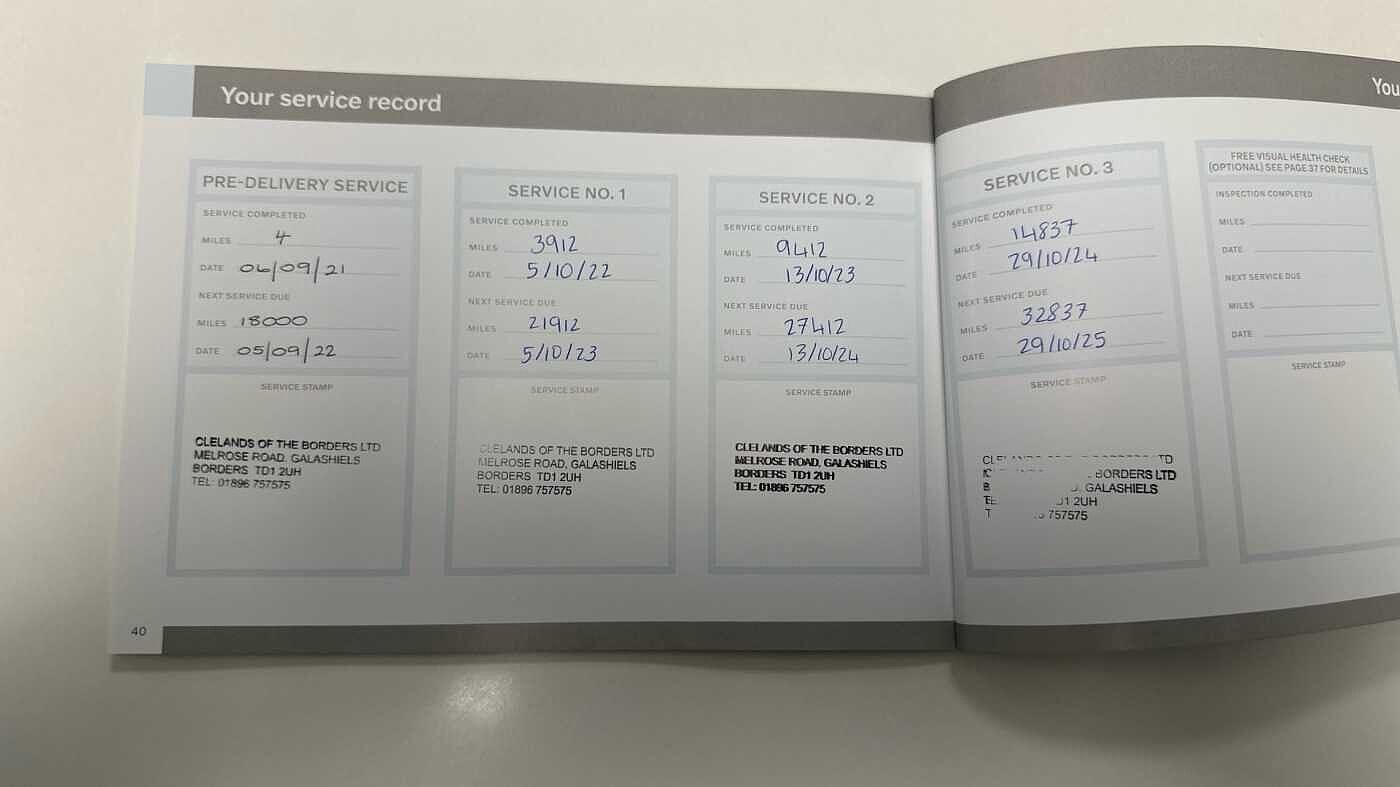 Your service record
You
PRE-DELIVERY SERVICE
SERVICE COMPLETED
MILES 4
DATE 06/09/21
NEXT SERVICE DUE
MILES 18000
DATE 05/09/22
SERVICE STAMP
CLELANDS OF THE BORDERS LTD
MELROSE ROAD, GALASHIELS
BORDERS TD1 2UH
TEL: 01896 757575
SERVICE NO. 1
SERVICE COMPLETED
MILES 3912
DATE 5/10/22
NEXT SERVICE DUE
MILES 21912
DATE 5/10/23
SERVICE STAMP
CLELANDS OF THE BORDERS LTD
MELROSE ROAD, GALASHIELS
BORDERS TD1 2UH
TEL: 01896 757575
SERVICE NO. 2
SERVICE COMPLETED
MILES 9412
DATE 13/10/23
NEXT SERVICE DUE
MILES 27412
DATE 13/10/24
SERVICE STAMP
CLELANDS OF THE BORDERS LTD
MELROSE ROAD, GALASHIELS
BORDERS TD1 2UH
TEL: 01896 757575
SERVICE NO. 3
SERVICE COMPLETED
MILES 14837
DATE 29/10/24
NEXT SERVICE DUE
MILES 32837
DATE 29/10/25
SERVICE STAMP
BORDERS LTD
GALASHIELS
2UH
757575
FREE VISUAL HEALTH CHECK
(OPTIONAL) SEE PAGE 37 FOR DETAILS
INSPECTION COMPLETED
MILES
DATE
NEXT SERVICE DUE
MILES
DATE
SERVICE STAMP
40